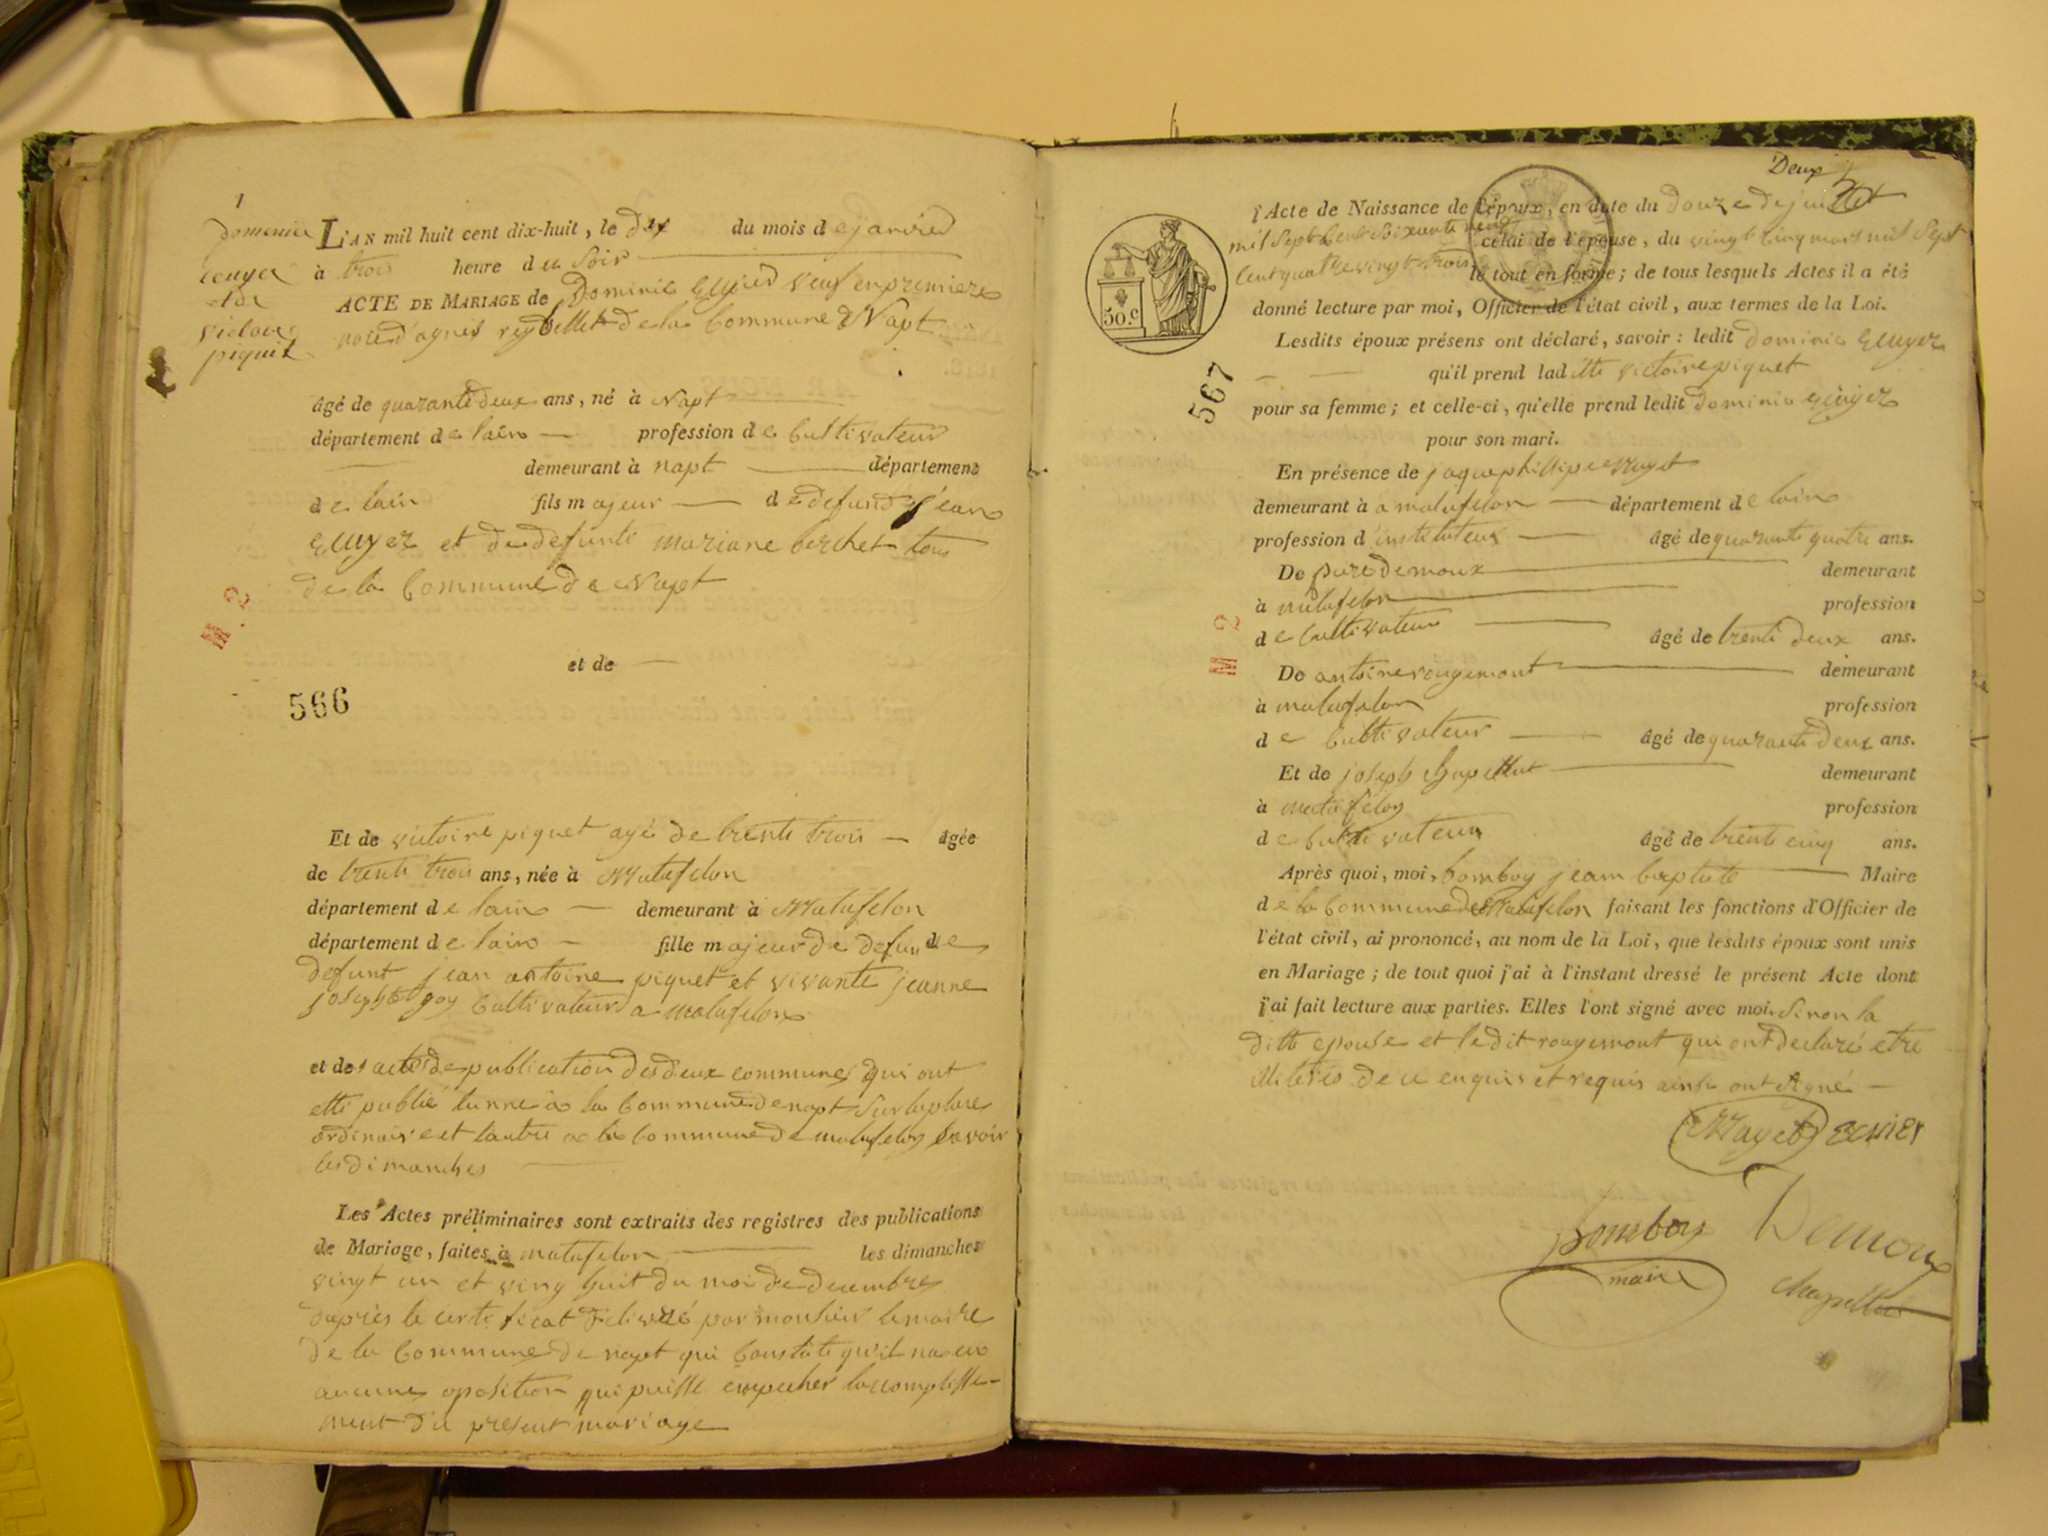 1
dominie
ecuyer
et de
victoire
piquet
L'AN mil huit cent dix-huit, le dix du mois de janvier
à trois heure du Soir
ACTE DE MARIAGE de Dominie Ecuyer veuf en premiere
d'agnès reybellet de la Commune d Napt
âgé de quarante deux ans, né à Napt
département de lain profession de Cultivateur
demeurant à napt département
de lain fils majeur de defund jean
Ecuyer et de defunte mariane berchet tous
de la Commune de Napt
M. 2
et de
566
Et de victoire piquet agé de trente trois âgée
de trente trois ans, née à Matafelon
département de lain demeurant à Matafelon
département de lain fille majeur de defun de
defunt jean antoine piquet et vivante jeanne
josephte goy Cultivateur a matafelon
et des acte de publication des deux commune qui ont
etté publié lunne a la Commune de napt Sur la place
ordinaire et lautre a la Commune de matafelon Savoir
les dimanches
Les Actes préliminaires sont extraits des registres des publications
de Mariage, faites à matafelon les dimanches
vingt un et ving huit du moi de decembre
daprès le certificat delivré par monsieur le maire
de la Commune de napt qui Constate qu'il na eu
aucune oposition qui puisse empecher laccomplisse-
ment du present mariage
Deux
l'Acte de Naissance de l'époux, en date du douze de juillet
mil Sept Cent Soixante neuf celui de l'épouse, du vingt cinq mars mil Sept
Cent quatre vingt trois le tout en forme; de tous lesquels Actes il a été
donné lecture par moi, Officier de l'état civil, aux termes de la Loi.
50.c
Lesdits époux présens ont déclaré, savoir: ledit dominie Ecuyer
qu'il prend laditte victoire piquet
567
pour sa femme; et celle-ci, qu'elle prend ledit dominie Ecuyer
pour son mari.
En présence de jaque phillipe
demeurant à a matafelon département de lain
profession d'instituteur âgé de quarante quatre ans.
De piere demoux demeurant
à matafelon profession
de Cultivateur âgé de trente deux ans.
M 2
De antoine rougemont demeurant
à matafelon profession
de Cultivateur âgé de quarante deux ans.
Et de joseph Chapellut demeurant
à matafelon profession
de Cultivateur âgé de trente cinq ans.
Après quoi, moi, bomboy jean baptiste Maire
de la Commune de Matafelon faisant les fonctions d'Officier de
l'état civil, ai prononcé, au nom de la Loi, que lesdits époux sont unis
en Mariage; de tout quoi j'ai à l'instant dressé le présent Acte dont
j'ai fait lecture aux parties. Elles l'ont signé avec moi. Sinon la
ditte epouse et le dit rougemont qui ont declaré etre
illiterés de ce enquis et requis ainsi ont signé
Mayet Ecuier
bomboy Demoux
maire
Chapellut